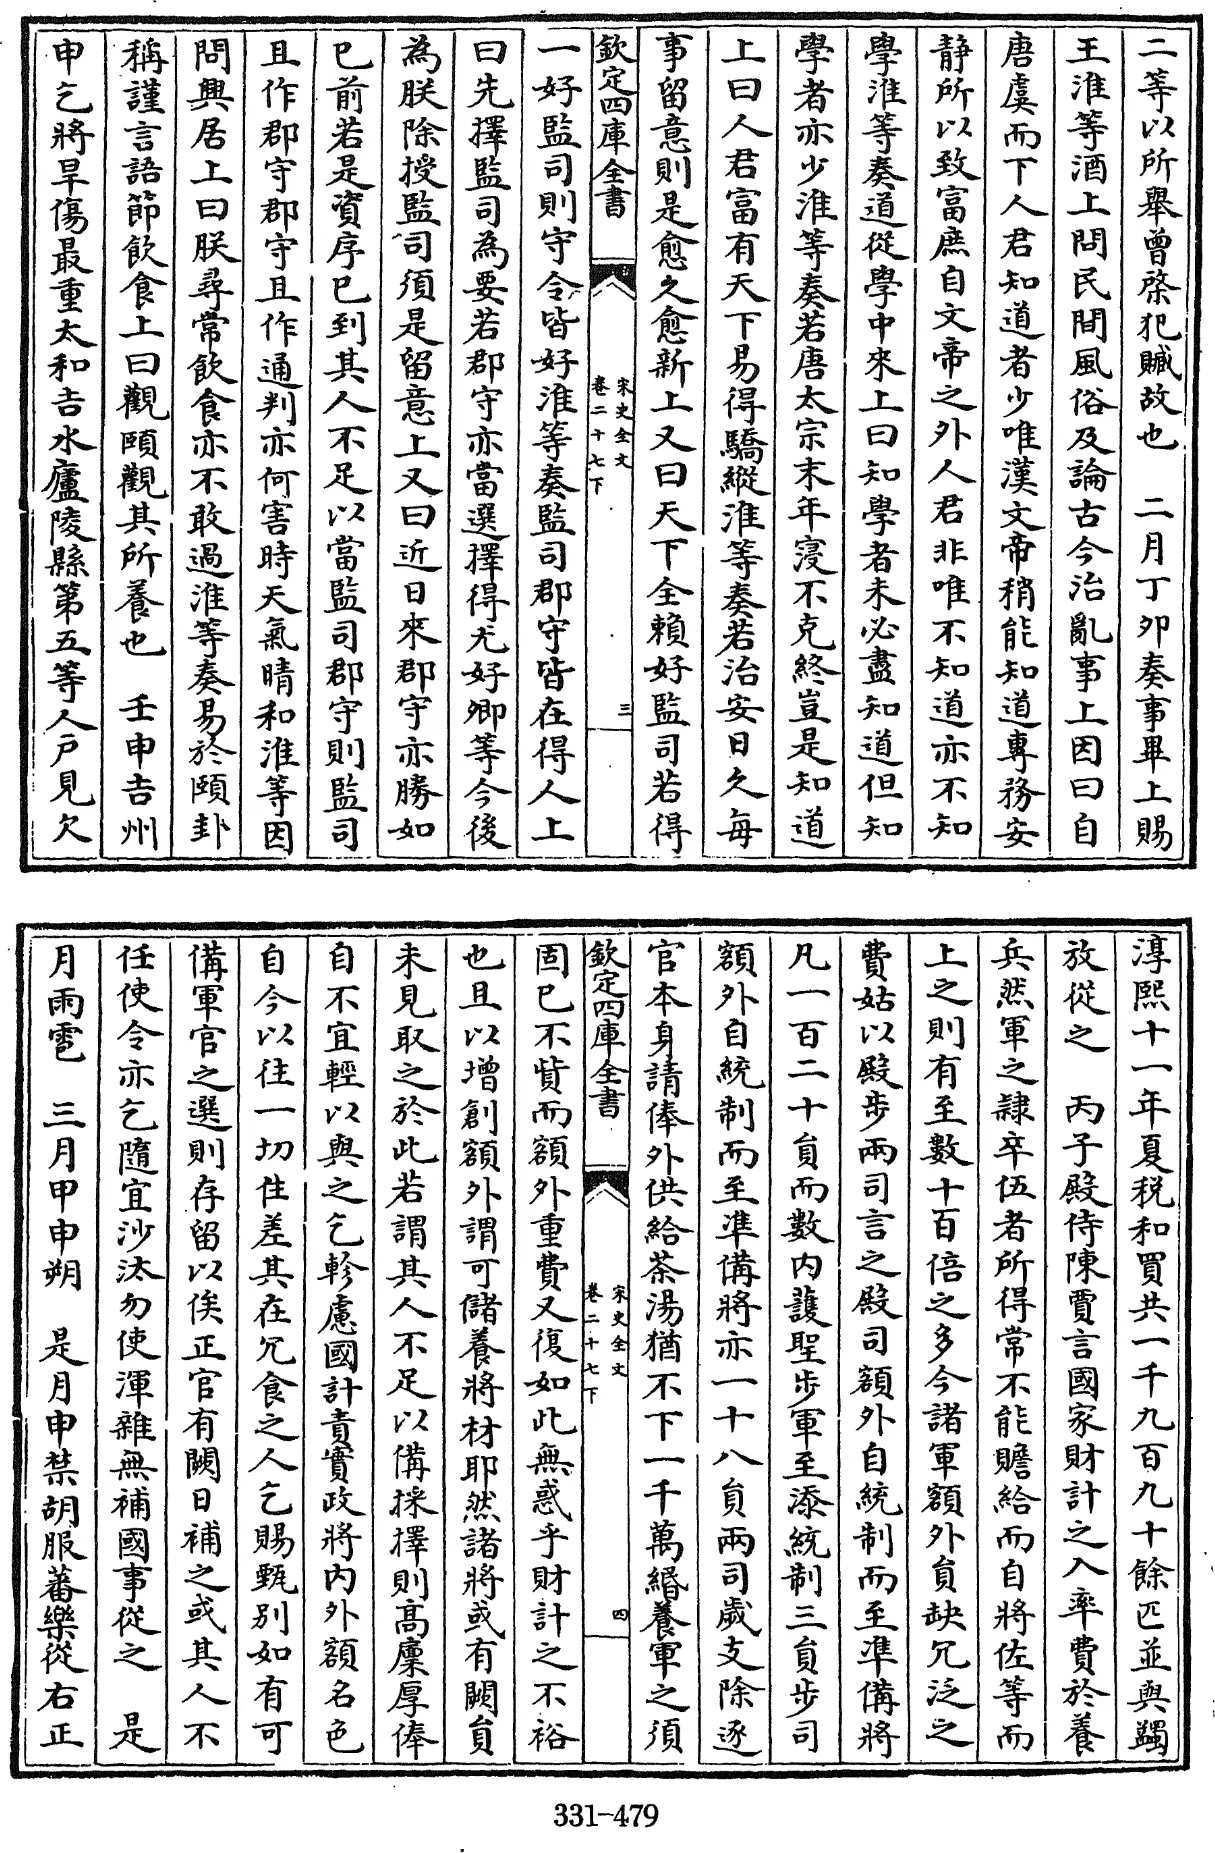 二等以所舉曾棨犯贓故也　二月丁卯奏事畢上賜
王淮等酒上問民間風俗及論古今治亂事上因曰自
唐虞而下人君知道者少唯漢文帝稍能知道專務安
静所以致富庶自文帝之外人君非唯不知道亦不知
學淮等奏道從學中來上曰知學者未必盡知道但知
學者亦少淮等奏若唐太宗末年寖不克終豈是知道
上曰人君富有天下易得驕縱淮等奏若治安日久每
事留意則是愈久愈新上又曰天下全賴好監司若得
欽定四庫全書
宋史全文
卷二十七下
三
一好監司則守令皆好淮等奏監司郡守皆在得人上
曰先擇監司為要若郡守亦當選擇得尤好卿等今後
為朕除授監司須是留意上又曰近日來郡守亦勝如
已前若是資序已到其人不足以當監司郡守則監司
且作郡守郡守且作通判亦何害時天氣晴和淮等因
問興居上曰朕尋常飲食亦不敢過淮等奏易於頤卦
稱謹言語節飲食上曰觀頤觀其所養也　壬申吉州
申乞將旱傷最重太和吉水廬陵縣第五等人户見欠
淳熙十一年夏税和買共一千九百九十餘匹並與蠲
放從之　丙子殿侍陳賈言國家財計之入率費於養
兵然軍之隷卒伍者所得常不能贍給而自將佐等而
上之則有至數十百倍之多今諸軍額外員缺冗泛之
費姑以殿步兩司言之殿司額外自統制而至凖備將
凡一百二十員而數内䕶聖步軍至添統制三員步司
額外自統制而至凖備將亦一十八員兩司歲支除逐
官本身請俸外供給茶湯猶不下一千萬緡養軍之須
欽定四庫全書
宋史全文
卷二十七下
四
固已不貲而額外重費又復如此無惑乎財計之不裕
也且以增創額外謂可儲養將材耶然諸將或有闕員
未見取之於此若謂其人不足以備採擇則高廩厚俸
自不宜輕以與之乞軫慮國計責實政將内外額名色
自今以往一切住差其在冗食之人乞賜甄别如有可
備軍官之選則存留以俟正官有闕日補之或其人不
任使令亦乞隨宜沙汰勿使渾雜無補國事從之　是
月雨雹　三月甲申朔　是月申禁胡服蕃樂從右正
331-479